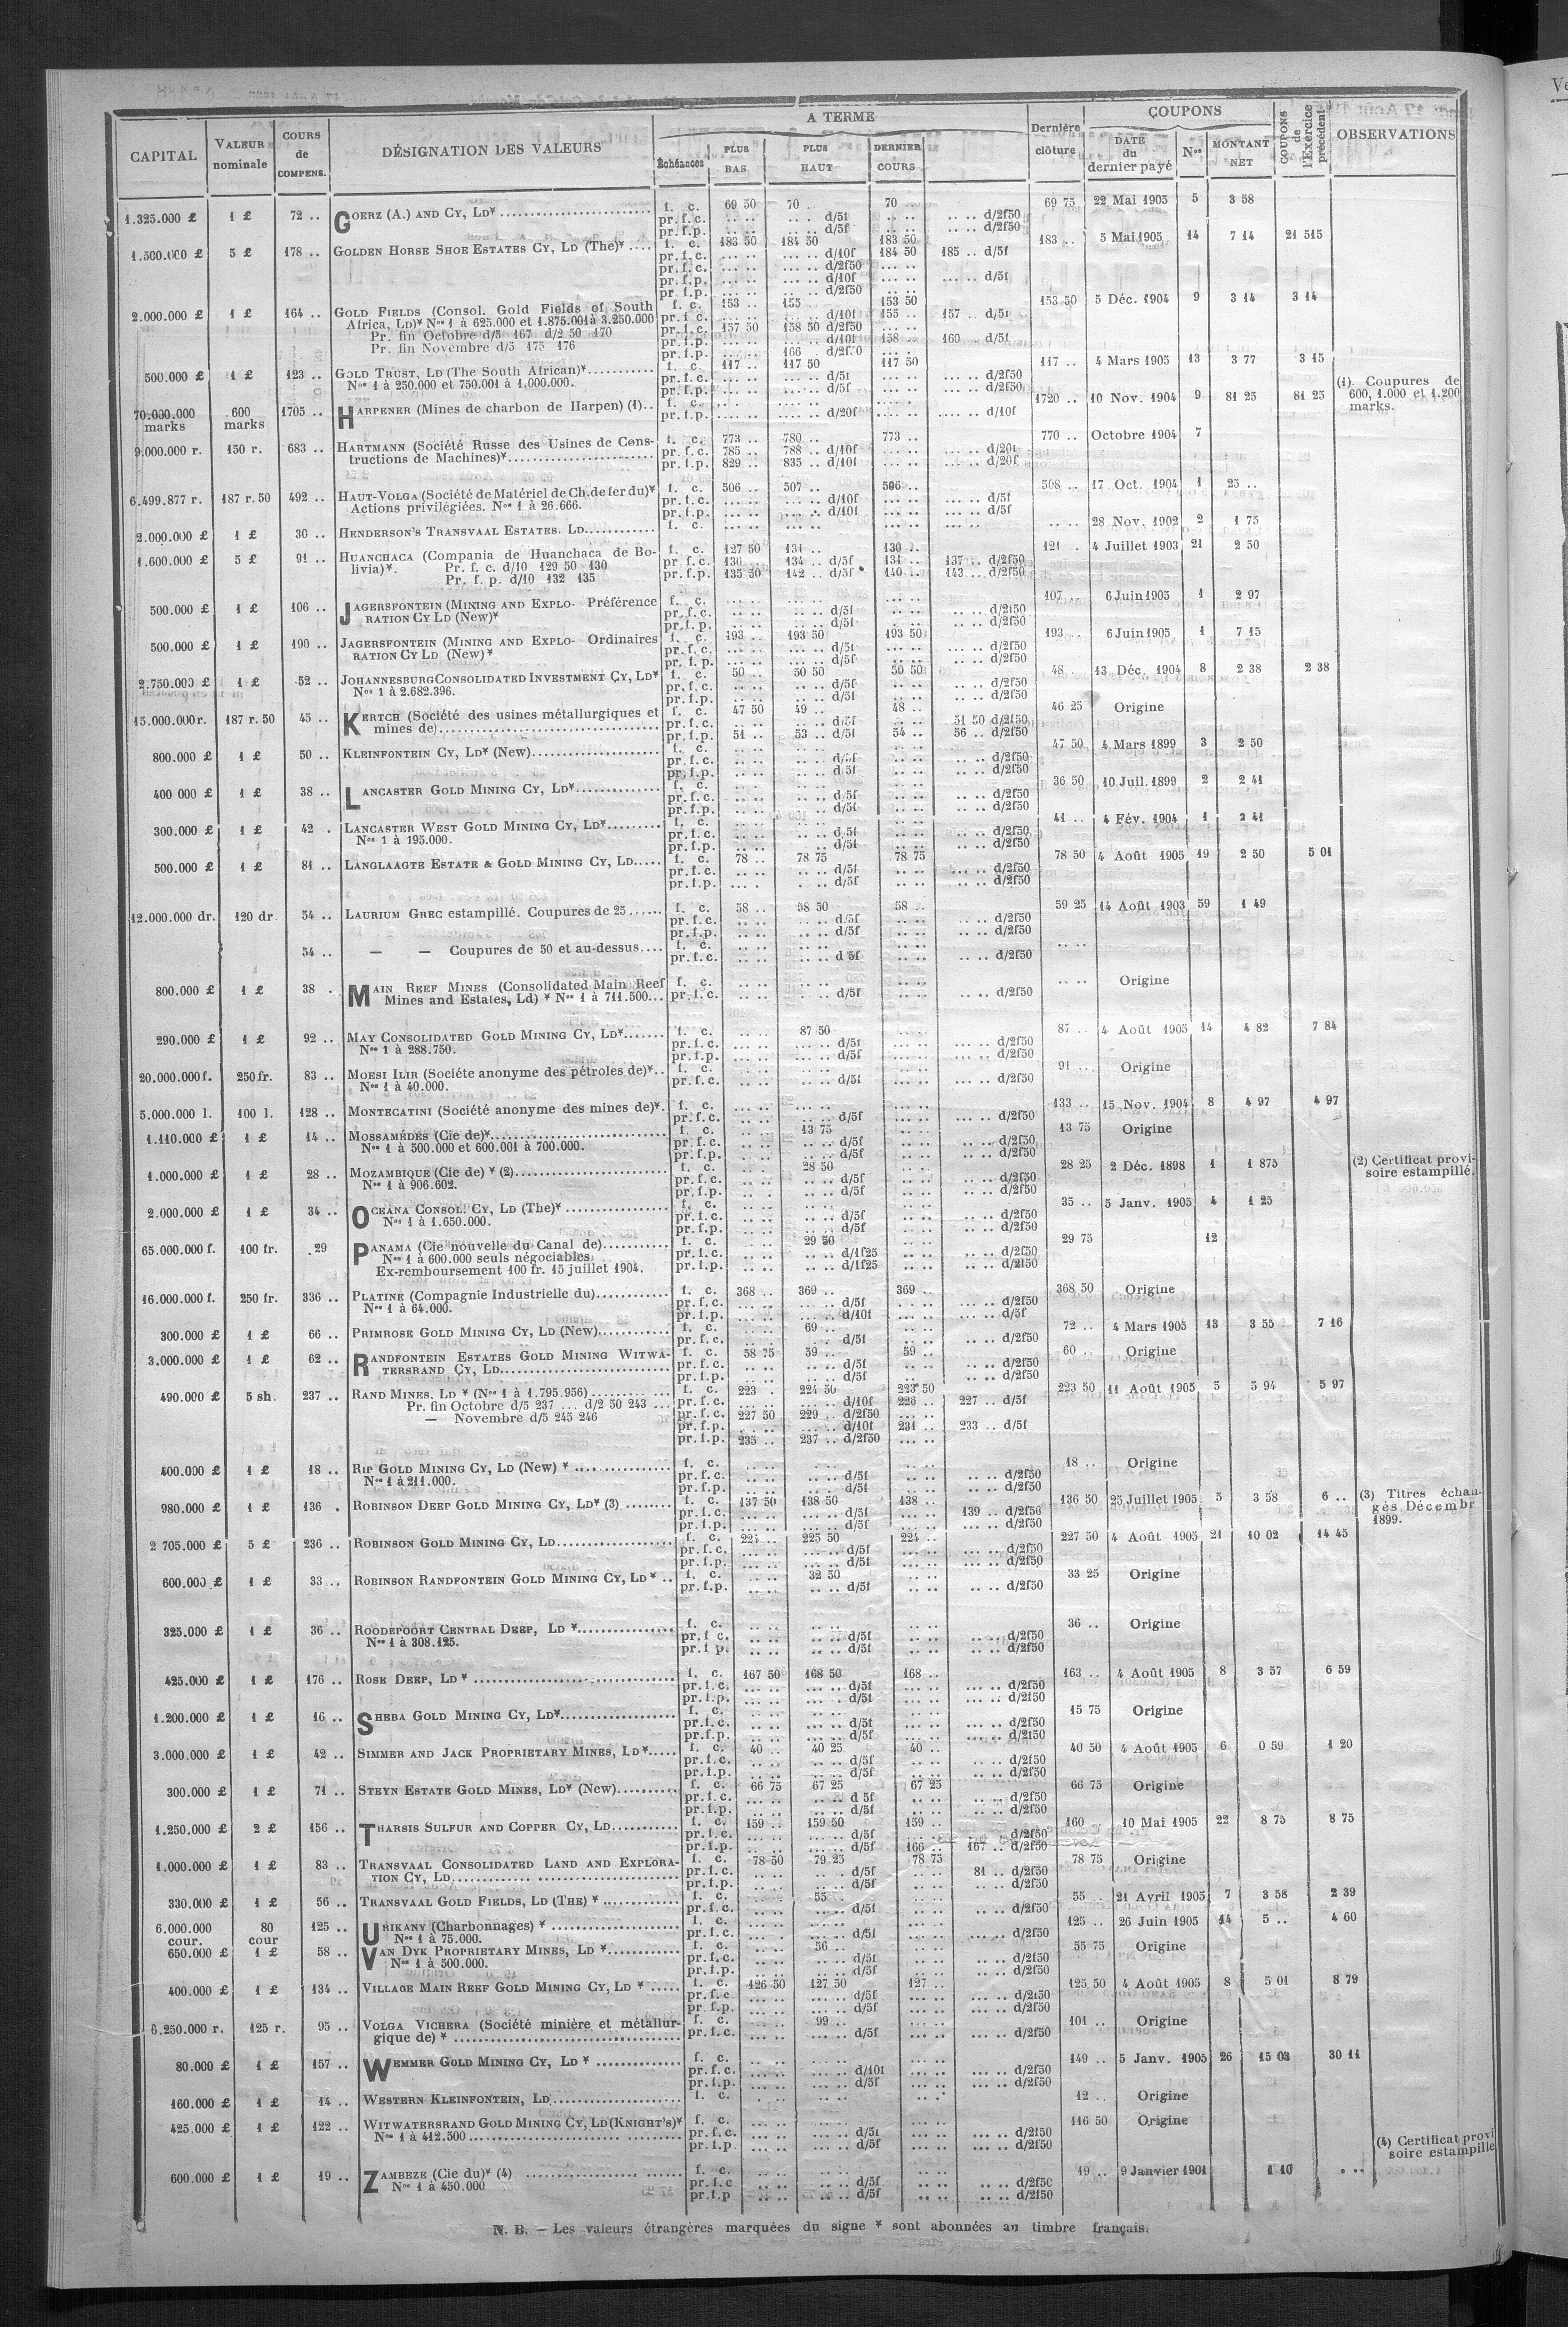 CAPITAL VALEUR nominale COURS de COMPENS. DÉSIGNATION DES VALEURS A TERME Échéances PLUS BAS PLUS HAUT DERNIER COURS Dernière clôture COUPONS DATE du dernier payé Nos MONTANT NET COUPONS de l'Exercice précédent OBSERVATIONS
1.325.000 £ 1 £ 72 .. GOERZ (A.) AND CY, LD* f. c. 69 50 70 .. 70 .. 69 75 22 Mai 1905 5 3 58
pr. f.c. .. .. .. .. d/5f .. .. .. .. d/2f50
pr. f.p. .. .. .. .. d/5f .. .. .. .. d/2f50
1.500.000 £ 5 £ 178 .. GOLDEN HORSE SHOE ESTATES CY, LD (The)* .... f. c. 183 50 184 50 183 50 183 .. 5 Mai 1905 14 7 14 21 515
pr. f.c. ... .. ... .. d/10f 184 50 185 .. d/5f
pr. f.c. ... .. ... .. d/2f50 ... ..
pr. f.p. ... .. ... .. d/10f ... .. ... .. d/5f
pr. f.p. ... .. ... .. d/2f50 ... ..
2.000.000 £ 1 £ 164 .. GOLD FIELDS (Consol. Gold Fields of South f. c. 153 .. 155 .. 153 50 153 50 5 Déc. 1904 9 3 14 3 14
Africa, LD)* Nos 1 à 625.000 et 1.875.001 à 3.250.000 pr. f.c. ... .. ... .. d/10f 155 .. 157 .. d/5f
Pr. fin Octobre d/5 167 d/2 50 170 pr. f.c. 157 50 158 50 d/2f50 ... ..
Pr. fin Novembre d/5 175 176 pr. f.p. ... .. ... .. d/10f 158 .. 160 .. d/5f
pr. f.p. ... .. 166 .. d/2f50 ... ..
500.000 £ 1 £ 123 .. GOLD TRUST, LD (The South African)* f. c. 117 .. 117 50 117 50 117 .. 4 Mars 1905 13 3 77 3 15
Nos 1 à 250.000 et 750.001 à 1.000.000. pr. f.c. ... .. ... .. d/5f ... .. ... .. d/2f50
pr. f.p. ... .. ... .. d/5f ... .. ... .. d/2f50
70.000.000 marks 600 marks 1705 .. HARPENER (Mines de charbon de Harpen) (1).. f. c. 1720 .. 10 Nov. 1904 9 81 25 81 25 (1) Coupures de
600, 1.000 et 1.200
marks.
pr. f.p. .... .. .... .. d/20f .... .. d/10f
9.000.000 r. 150 r. 683 .. HARTMANN (Société Russe des Usines de Cons- f. c. 773 .. 780 .. 773 .. 770 .. Octobre 1904 7
tructions de Machines)* pr. f.c. 785 .. 788 .. d/10f ... .. ... .. d/20f
pr. f.p. 829 .. 835 .. d/10f ... .. ... .. d/20f
6.499.877 r. 187 r. 50 492 .. HAUT-VOLGA (Société de Matériel de Ch. de fer du)* f. c. 506 .. 507 .. 506 .. 508 .. 17 Oct. 1904 1 25 ..
Actions privilégiées. Nos 1 à 26.666. pr. f.c. ... .. ... .. d/10f ... .. d/5f
pr. f.p. ... .. ... .. d/10f ... .. d/5f
2.000.000 £ 1 £ 30 .. HENDERSON'S TRANSVAAL ESTATES. LD f. c. ... .. ... .. .. .. 28 Nov. 1902 2 1 75
1.600.000 £ 5 £ 91 .. HUANCHACA (Compania de Huanchaca de Bo- f. c. 127 50 131 .. 130 .. 121 .. 4 Juillet 1903 21 2 50
livia)*. Pr. f. c. d/10 129 50 130 pr. f.c. 130 .. 134 .. d/5f 131 .. 137 .. d/2f50
Pr. f. p. d/10 132 135 pr. f.p. 135 50 142 .. d/5f 140 .. 143 .. d/2f50
500.000 £ 1 £ 106 .. JAGERSFONTEIN (MINING AND EXPLO- Préférence f. c. ... .. ... .. 107 .. 6 Juin 1905 1 2 97
RATION CY LD (New)* pr. f.c. ... .. ... .. d/5f .. .. d/2f50
pr. f.p. ... .. ... .. d/5f .. .. d/2f50
500.000 £ 1 £ 190 .. JAGERSFONTEIN (MINING AND EXPLO- Ordinaires f. c. 193 .. 193 50 193 50 193 .. 6 Juin 1905 1 7 15
RATION CY LD (New)* pr. f.c. ... .. ... .. d/5f .. .. d/2f50
pr. f.p. ... .. ... .. d/5f .. .. d/2f50
2.750.000 £ 1 £ 52 .. JOHANNESBURG CONSOLIDATED INVESTMENT CY, LD* f. c. 50 .. 50 50 50 50 48 .. 13 Déc. 1904 8 2 38 2 38
Nos 1 à 2.682.396. pr. f.c. .. .. .. .. d/5f .. .. d/2f50
pr. f.p. .. .. .. .. d/5f .. .. d/2f50
15.000.000 r. 187 r. 50 45 .. KERTCH (Société des usines métallurgiques et f. c. 47 50 49 .. 48 .. 46 25 Origine
mines de) pr. f.c. .. .. .. .. d/5f .. .. 51 50 d/2f50
pr. f.p. 51 .. 53 .. d/5f 54 .. 56 .. d/2f50
800.000 £ 1 £ 50 .. KLEINFONTEIN CY, LD* (New) f. c. 47 50 4 Mars 1899 3 2 50
pr. f.c. .. .. .. .. d/5f .. .. d/2f50
pr. f.p. .. .. .. .. d/5f .. .. d/2f50
400 000 £ 1 £ 38 .. LANCASTER GOLD MINING CY, LD* f. c. 36 50 10 Juil. 1899 2 2 41
pr. f.c. .. .. .. .. d/5f .. .. d/2f50
pr. f.p. .. .. .. .. d/5f .. .. d/2f50
300.000 £ 1 £ 42 . LANCASTER WEST GOLD MINING CY, LD* f. c. 41 .. 4 Fév. 1904 1 2 41
Nos 1 à 195.000. pr. f.c. .. .. .. .. d/5f .. .. d/2f50
pr. f.p. .. .. .. .. d/5f .. .. d/2f50
500.000 £ 1 £ 81 .. LANGLAAGTE ESTATE & GOLD MINING CY, LD f. c. 78 .. 78 75 78 75 78 50 4 Août 1905 19 2 50 5 01
pr. f.c. .. .. .. .. d/5f .. .. d/2f50
pr. f.p. .. .. .. .. d/5f .. .. d/2f50
12.000.000 dr. 120 dr 54 .. LAURIUM GREC estampillé. Coupures de 25 f. c. 58 .. 58 50 58 .. 59 25 14 Août 1903 59 1 49
pr. f.c. .. .. .. .. d/5f .. .. d/2f50
pr. f.p. .. .. .. .. d/5f .. .. d/2f50
54 .. — — Coupures de 50 et au-dessus f. c. .. ..
pr. f.c. .. .. .. .. d 5f .. .. d/2f50
800.000 £ 1 £ 38 . MAIN REEF MINES (Consolidated Main Reef f. c. .. .. Origine
Mines and Estates, Ld) * Nos 1 à 711.500... pr. f.c. .. .. . .. d/5f .. .. d/2f50
290.000 £ 1 £ 92 .. MAY CONSOLIDATED GOLD MINING CY, LD* f. c. 87 50 87 .. 4 Août 1905 14 4 82 7 84
Nos 1 à 288.750. pr. f.c. .. .. d/5f ... .. d/2f50
pr. f.p. .. .. d/5f ... .. d/2f50
20.000.000 f. 250 fr. 83 .. MOESI ILIR (Sociéte anonyme des pétroles de)*.. f. c. 91 .. Origine
Nos 1 à 40.000. pr. f.c. .. .. d/5f ... .. d/2f50
5.000.000 l. 100 l. 128 .. MONTECATINI (Société anonyme des mines de)*. f. c. ... .. 133 .. 15 Nov. 1904 8 4 97 4 97
pr. f.c. ... .. d/5f ... .. d/2f50
1.110.000 £ 1 £ 14 .. MOSSAMÉDÈS (Cie de)* f. c. 13 75 13 75 Origine
Nos 1 à 500.000 et 600.001 à 700.000. pr. f.c. .. .. d/5f .. .. d/2f50
pr. f.p. .. .. d/5f .. .. d/2f50
1.000.000 £ 1 £ 28 .. MOZAMBIQUE (Cie de) * (2) f. c. 28 50 28 25 2 Déc. 1898 1 1 875 (2) Certificat provi-
soire estampillé.
Nos 1 à 906.602. pr. f.c. .. .. d/5f .. .. d/2f50
pr. f.p. .. .. d/5f .. .. d/2f50
2.000.000 £ 1 £ 34 .. OCEANA CONSOL. CY, LD (The)* f. c. 35 .. 5 Janv. 1905 4 1 25
Nos 1 à 1.650.000. pr. f.c. .. .. d/5f .. .. d/2f50
pr. f.p. .. .. d/5f .. .. d/2f50
65.000.000 f. 100 fr. 29 PANAMA (Cie nouvelle du Canal de) f. c. 29 50 29 75 12
Nos 1 à 600.000 seuls négociables pr. f.c. .. .. d/1f25 .. .. d/2f50
Ex-remboursement 100 fr. 15 juillet 1904. pr. f.p. .. .. d/1f25 .. .. d/2f50
16.000.000 f. 250 fr. 336 .. PLATINE (Compagnie Industrielle du) f. c. 368 .. 369 .. 369 .. 368 50 Origine
Nos 1 à 64.000. pr. f.c. ... .. ... .. d/5f ... .. d/2f50
pr. f.p. ... .. ... .. d/10f ... .. d/5f
300.000 £ 1 £ 66 .. PRIMROSE GOLD MINING CY, LD (New) f. c. 69 .. 72 .. 4 Mars 1905 13 3 55 7 16
pr. f.c. .. .. d/5f .. .. d/2f50
3.000.000 £ 1 £ 62 .. RANDFONTEIN ESTATES GOLD MINING WITWA- f. c. 58 75 59 .. 59 .. 60 .. Origine
TERSRAND CY, LD pr. f.c. .. .. .. .. d/5f .. .. d/2f50
pr. f.p. .. .. .. .. d/5f .. .. d/2f50
490.000 £ 5 sh. 237 .. RAND MINES. LD * (Nos 1 à 1.795.956) f. c. 223 . 224 50 223 50 223 50 11 Août 1905 5 5 94 5 97
Pr. fin Octobre d/5 237 ... d/2 50 243 ... pr. f.c. ... .. ... .. d/10f 226 .. 227 .. d/5f
— Novembre d/5 245 246 pr. f.c. 227 50 229 .. d/2f50 ... ..
pr. f.p. ... .. ... .. d/10f 231 .. 233 .. d/5f
pr. f.p. 235 .. 237 .. d/2f50 ... ..
400.000 £ 1 £ 18 .. RIP GOLD MINING CY, LD (New) * f. c. 18 .. Origine
Nos 1 à 211.000. pr. f.c. .. .. d/5f .. .. d/2f50
pr. f.p. .. .. d/5f .. .. d/2f50
980.000 £ 1 £ 136 . ROBINSON DEEP GOLD MINING CY, LD* (3) f. c. 137 50 138 50 138 .. 136 50 25 Juillet 1905 5 3 58 6 .. (3) Titres échan-
gés Décembr
1899.
pr. f.c. ... .. ... .. d/5f 139 .. d/2f50
pr. f.p. ... .. ... .. d/5f ... .. d/2f50
2 705.000 £ 5 £ 236 .. ROBINSON GOLD MINING CY, LD f. c. 224 .. 225 50 224 .. 227 50 4 Août 1905 21 10 02 14 45
pr. f.c. ... .. ... .. d/5f ... .. d/2f50
pr. f.p. ... .. ... .. d/5f ... .. d/2f50
600.000 £ 1 £ 33 .. ROBINSON RANDFONTEIN GOLD MINING CY, LD * .. f. c. 32 50 33 25 Origine
pr. f.p. .. .. d/5f .. .. d/2f50
325.000 £ 1 £ 36 .. ROODEPOORT CENTRAL DEEP, LD * f. c. 36 .. Origine
Nos 1 à 308.125. pr. f c. .. .. d/5f .. .. d/2f50
pr. f p. .. .. d/5f .. .. d/2f50
425.000 £ 1 £ 176 .. ROSE DEEP, LD * f. c. 167 50 168 50 168 .. 163 .. 4 Août 1905 8 3 57 6 59
pr. f.c. ... .. ... .. d/5f ... .. d/2f50
pr. f.p. ... .. ... .. d/5f ... .. d/2f50
1.200.000 £ 1 £ 16 .. SHEBA GOLD MINING CY, LD* f. c. 15 75 Origine
pr. f.c. .. .. d/5f ... .. d/2f50
pr. f.p. .. .. d/5f ... .. d/2f50
3.000.000 £ 1 £ 42 .. SIMMER AND JACK PROPRIETARY MINES, LD* f. c. 40 .. 40 25 40 .. 40 50 4 Août 1905 6 0 59 1 20
pr. f.c. .. .. d/5f .. .. d/2f50
pr. f.p. .. .. d/5f .. .. d/2f50
300.000 £ 1 £ 71 .. STEYN ESTATE GOLD MINES, LD* (New) f. c. 66 75 67 25 67 25 66 75 Origine
pr. f.c. .. .. d 5f .. .. d/2f50
pr. f.p. .. .. d/5f .. .. d/2f50
1.250.000 £ 2 £ 156 .. THARSIS SULFUR AND COPPER CY, LD f. c. 159 .. 159 50 159 .. 160 10 Mai 1905 22 8 75 8 75
pr. f.c. ... .. ... .. d/5f ... .. d/2f50
pr. f.p. ... .. ... .. d/5f 166 .. 167 .. d/2f50
1.000.000 £ 1 £ 83 .. TRANSVAAL CONSOLIDATED LAND AND EXPLORA- f. c. 78 50 79 25 78 75 78 75 Origine
TION CY, LD pr. f.c. .. .. .. .. d/5f 81 .. d/2f50
pr. f.p. .. .. .. .. d/5f .. .. d/2f50
330.000 £ 1 £ 56 .. TRANSVAAL GOLD FIELDS, LD (THE) * f. c. 55 .. 55 .. 21 Avril 1905 7 3 58 2 39
pr. f.c. .. .. d/5f .. .. d/2f50
6.000.000 cour. 80 cour 125 .. URIKANY (Charbonnages) * f. c. 125 .. 26 Juin 1905 14 5 .. 4 60
Nos 1 à 75.000. pr. f.c. ... .. d/5f ... .. d/2f50
650.000 £ 1 £ 58 .. VAN DYK PROPRIETARY MINES, LD * f. c. 56 .. 55 75 Origine
Nos 1 à 500.000. pr. f.c. .. .. d/5f .. .. d/2f50
pr. f.p. .. .. d/5f .. .. d/2f50
400.000 £ 1 £ 134 .. VILLAGE MAIN REEF GOLD MINING CY, LD * f. c. 126 50 127 50 127 .. 125 50 4 Août 1905 8 5 01 8 79
pr. f.c ... .. ... .. d/5f ... .. d/2f50
pr. f.p. ... .. ... .. d/5f ... .. d/2f50
6.250.000 r. 125 r. 95 .. VOLGA VICHERA (Société minière et métallur- f. c. 99 .. 101 .. Origine
gique de) * pr. f.c. ... .. d/5f ... .. d/2f50
80.000 £ 1 £ 157 .. WEMMER GOLD MINING CY, LD * f. c. 149 .. 5 Janv. 1905 26 15 03 30 11
pr. f.c. ... .. d/10f ... .. d/2f50
pr. f.p. ... .. d/5f ... .. d/2f50
160.000 £ 1 £ 14 .. WESTERN KLEINFONTEIN, LD f. c. 12 .. Origine
425.000 £ 1 £ 122 .. WITWATERSRAND GOLD MINING CY, LD (KNIGHT'S)* f. c. 116 50 Origine
Nos 1 à 412.500 pr. f.c. ... .. d/5f ... .. d/2f50
pr. f.p. ... .. d/5f ... .. d/2f50
600.000 £ 1 £ 19 .. ZAMBEZE (Cie du)* (4) f. c. 19 .. 9 Janvier 1901 1 10 .. (4) Certificat provi
soire estampillé
Nos 1 à 450.000 pr. f.c .. .. d/5f .. .. d/2f50
pr. f.p .. .. d/5f .. .. d/2f50
N. B. — Les valeurs étrangères marquées du signe * sont abonnées au timbre français.